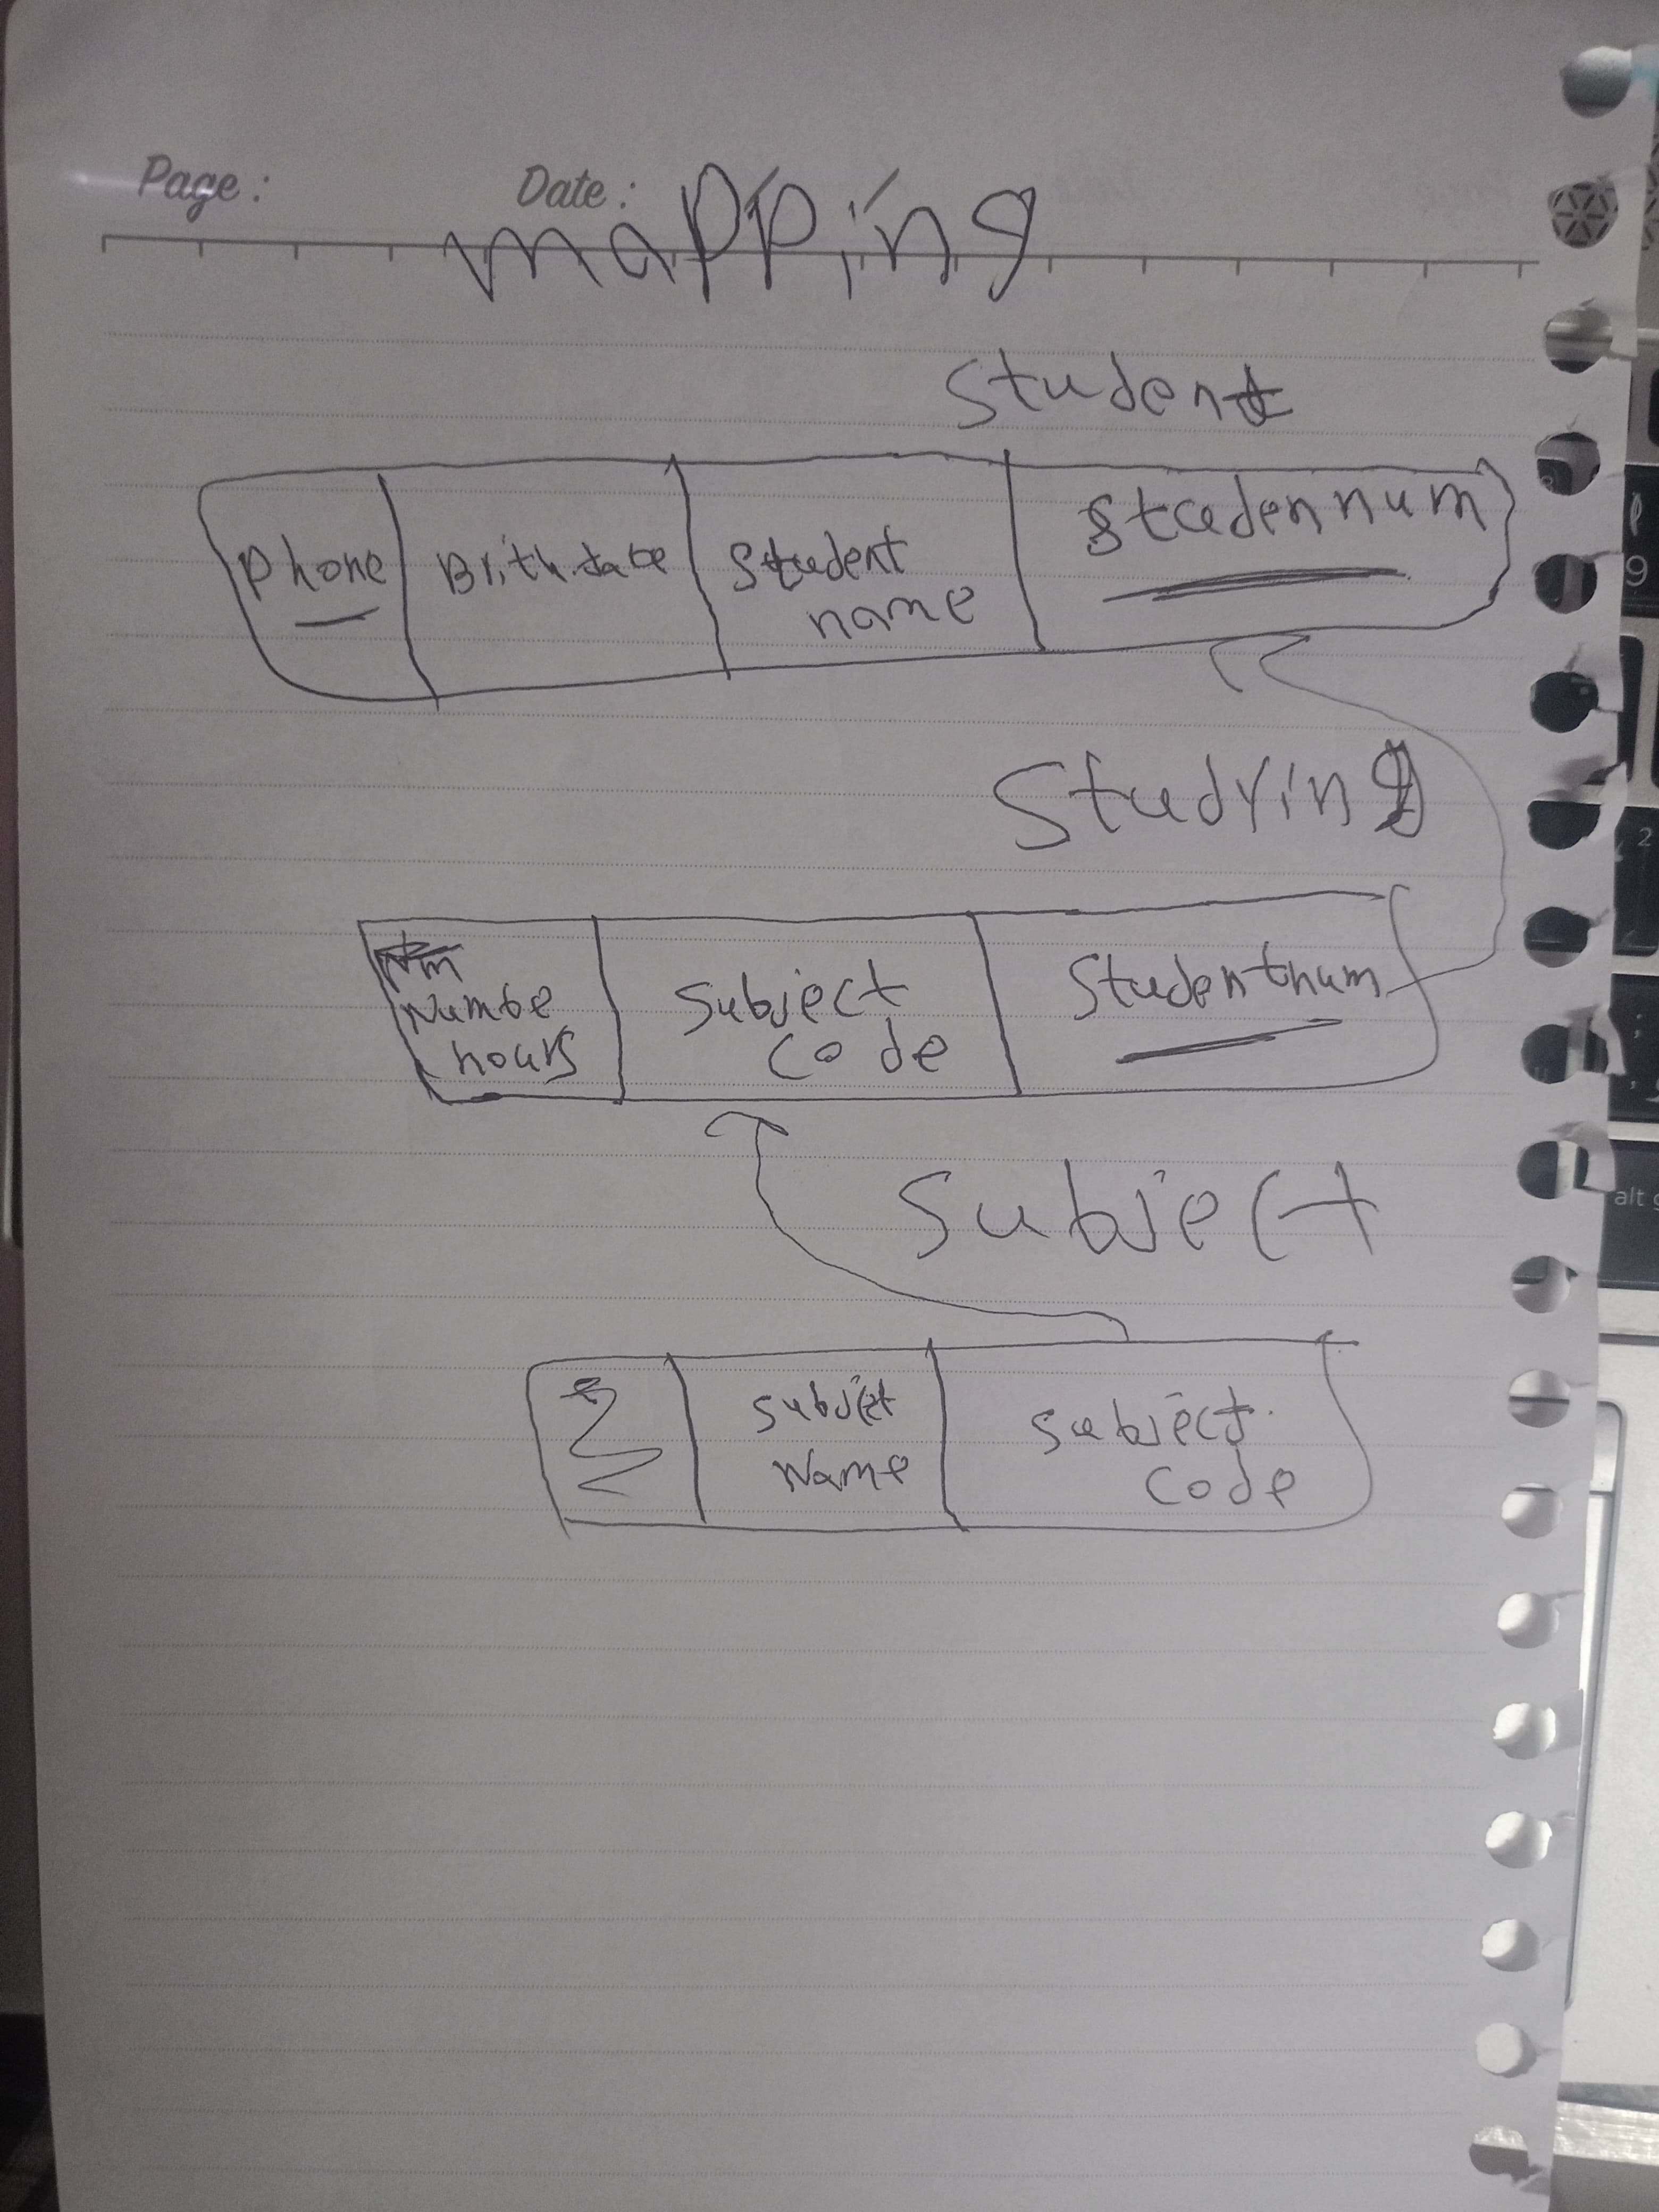 Page : Date :
mapping
Student
Phone Brithdate Student name Studennum
Studying
Numbe hours Subject Code Studentnum
Subject
Subject Name Subject Code
9
2
alt